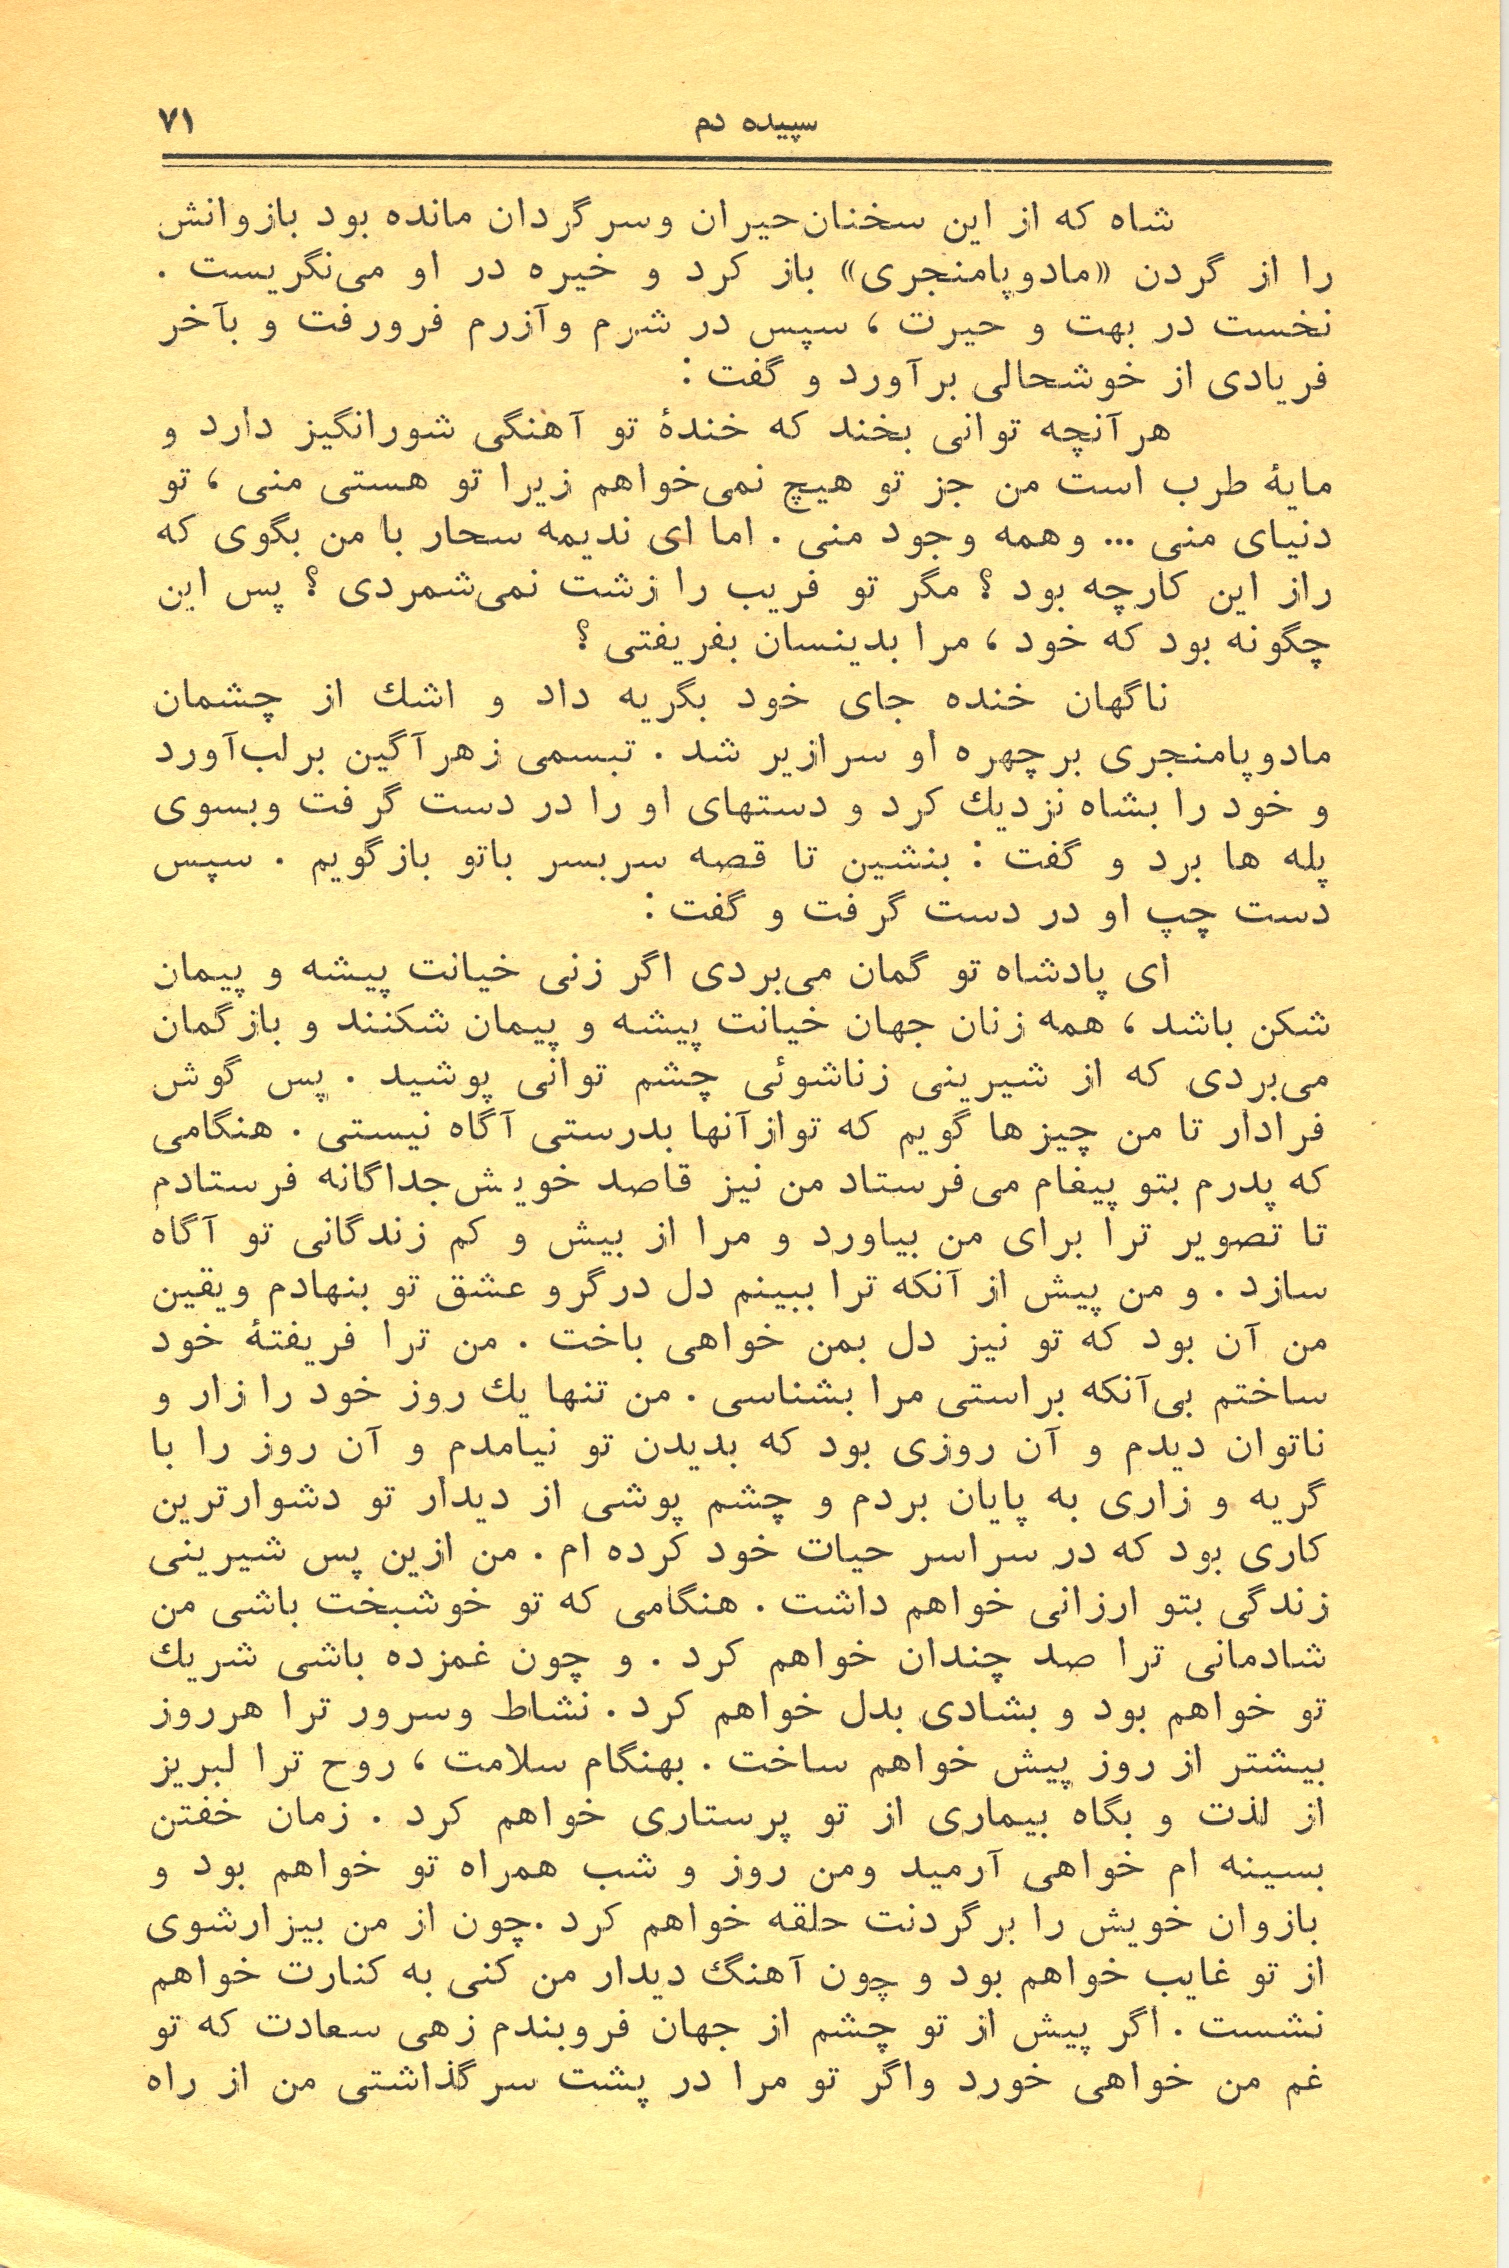 سپیده دم ۷۱
شاه که از این سخنان حیران وسرگردان مانده بود بازوانش
را از گردن «مادوپامنجری» باز کرد و خیره در او می‌نگریست .
نخست در بهت و حیرت ، سپس در شرم وآزرم فرورفت و بآخر
فریادی از خوشحالی برآورد و گفت :
هرآنچه توانی بخند که خندهٔ تو آهنگی شورانگیز دارد و
مایهٔ طرب است من جز تو هیچ نمی‌خواهم زیرا تو هستی منی ، تو
دنیای منی ... وهمه وجود منی . اما ای ندیمه سحار با من بگوی که
راز این کارچه بود ؟ مگر تو فریب را زشت نمی‌شمردی ؟ پس این
چگونه بود که خود ، مرا بدینسان بفریفتی ؟
ناگهان خنده جای خود بگریه داد و اشك از چشمان
مادوپامنجری برچهره او سرازیر شد . تبسمی زهرآگین برلب‌آورد
و خود را بشاه نزدیك کرد و دستهای او را در دست گرفت وبسوی
پله ها برد و گفت : بنشین تا قصه سربسر باتو بازگویم . سپس
دست چپ او در دست گرفت و گفت :
ای پادشاه تو گمان می‌بردی اگر زنی خیانت پیشه و پیمان
شکن باشد ، همه زنان جهان خیانت پیشه و پیمان شکنند و بازگمان
می‌بردی که از شیرینی زناشوئی چشم توانی پوشید . پس گوش
فرادار تا من چیزها گویم که توازآنها بدرستی آگاه نیستی . هنگامی
که پدرم بتو پیغام می‌فرستاد من نیز قاصد خویش‌جداگانه فرستادم
تا تصویر ترا برای من بیاورد و مرا از بیش و کم زندگانی تو آگاه
سازد . و من پیش از آنکه ترا ببینم دل درگرو عشق تو بنهادم ویقین
من آن بود که تو نیز دل بمن خواهی باخت . من ترا فریفتهٔ خود
ساختم بی‌آنکه براستی مرا بشناسی . من تنها یك روز خود را زار و
ناتوان دیدم و آن روزی بود که بدیدن تو نیامدم و آن روز را با
گریه و زاری به پایان بردم و چشم پوشی از دیدار تو دشوارترین
کاری بود که در سراسر حیات خود کرده ام . من ازین پس شیرینی
زندگی بتو ارزانی خواهم داشت . هنگامی که تو خوشبخت باشی من
شادمانی ترا صد چندان خواهم کرد . و چون غمزده باشی شریك
تو خواهم بود و بشادی بدل خواهم کرد . نشاط وسرور ترا هرروز
بیشتر از روز پیش خواهم ساخت . بهنگام سلامت ، روح ترا لبریز
از لذت و بگاه بیماری از تو پرستاری خواهم کرد . زمان خفتن
بسینه ام خواهی آرمید ومن روز و شب همراه تو خواهم بود و
بازوان خویش را برگردنت حلقه خواهم کرد .چون از من بیزارشوی
از تو غایب خواهم بود و چون آهنگ دیدار من کنی به کنارت خواهم
نشست . اگر پیش از تو چشم از جهان فروبندم زهی سعادت که تو
غم من خواهی خورد واگر تو مرا در پشت سرگذاشتی من از راه